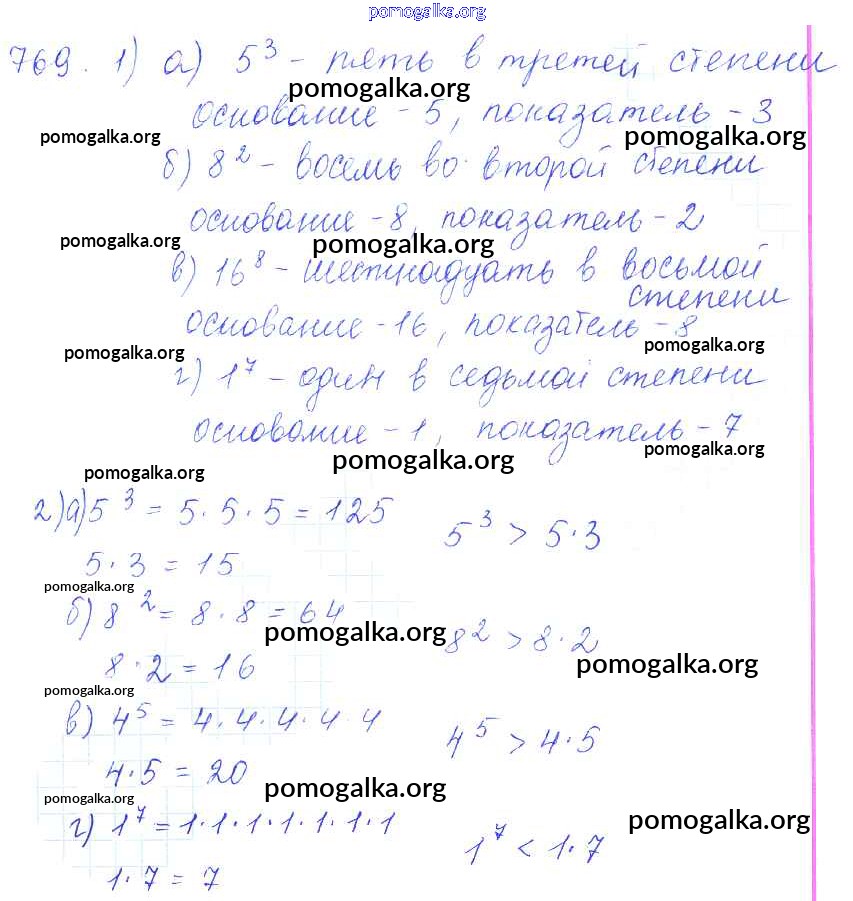 pomogalka.org
769. 1) а) 5³ - пять в третей степени
pomogalka.org
основание - 5, показатель - 3
pomogalka.org pomogalka.org
б) 8² - восемь во второй степени
основание - 8, показатель - 2
pomogalka.org pomogalka.org
в) 16⁸ - шестнадцать в восьмой
степени
основание - 16, показатель - 8
pomogalka.org pomogalka.org
г) 1⁷ - один в седьмой степени
основание - 1, показатель - 7
pomogalka.org pomogalka.org pomogalka.org
2) а) 5³ = 5 · 5 · 5 = 125
5³ > 5 · 3
5 · 3 = 15
pomogalka.org
б) 8² = 8 · 8 = 64
pomogalka.org 8² > 8 · 2
8 · 2 = 16 pomogalka.org
pomogalka.org
в) 4⁵ = 4 · 4 · 4 · 4 · 4
4⁵ > 4 · 5
4 · 5 = 20
pomogalka.org pomogalka.org
г) 1⁷ = 1 · 1 · 1 · 1 · 1 · 1 · 1 pomogalka.org
1⁷ < 1 · 7
1 · 7 = 7